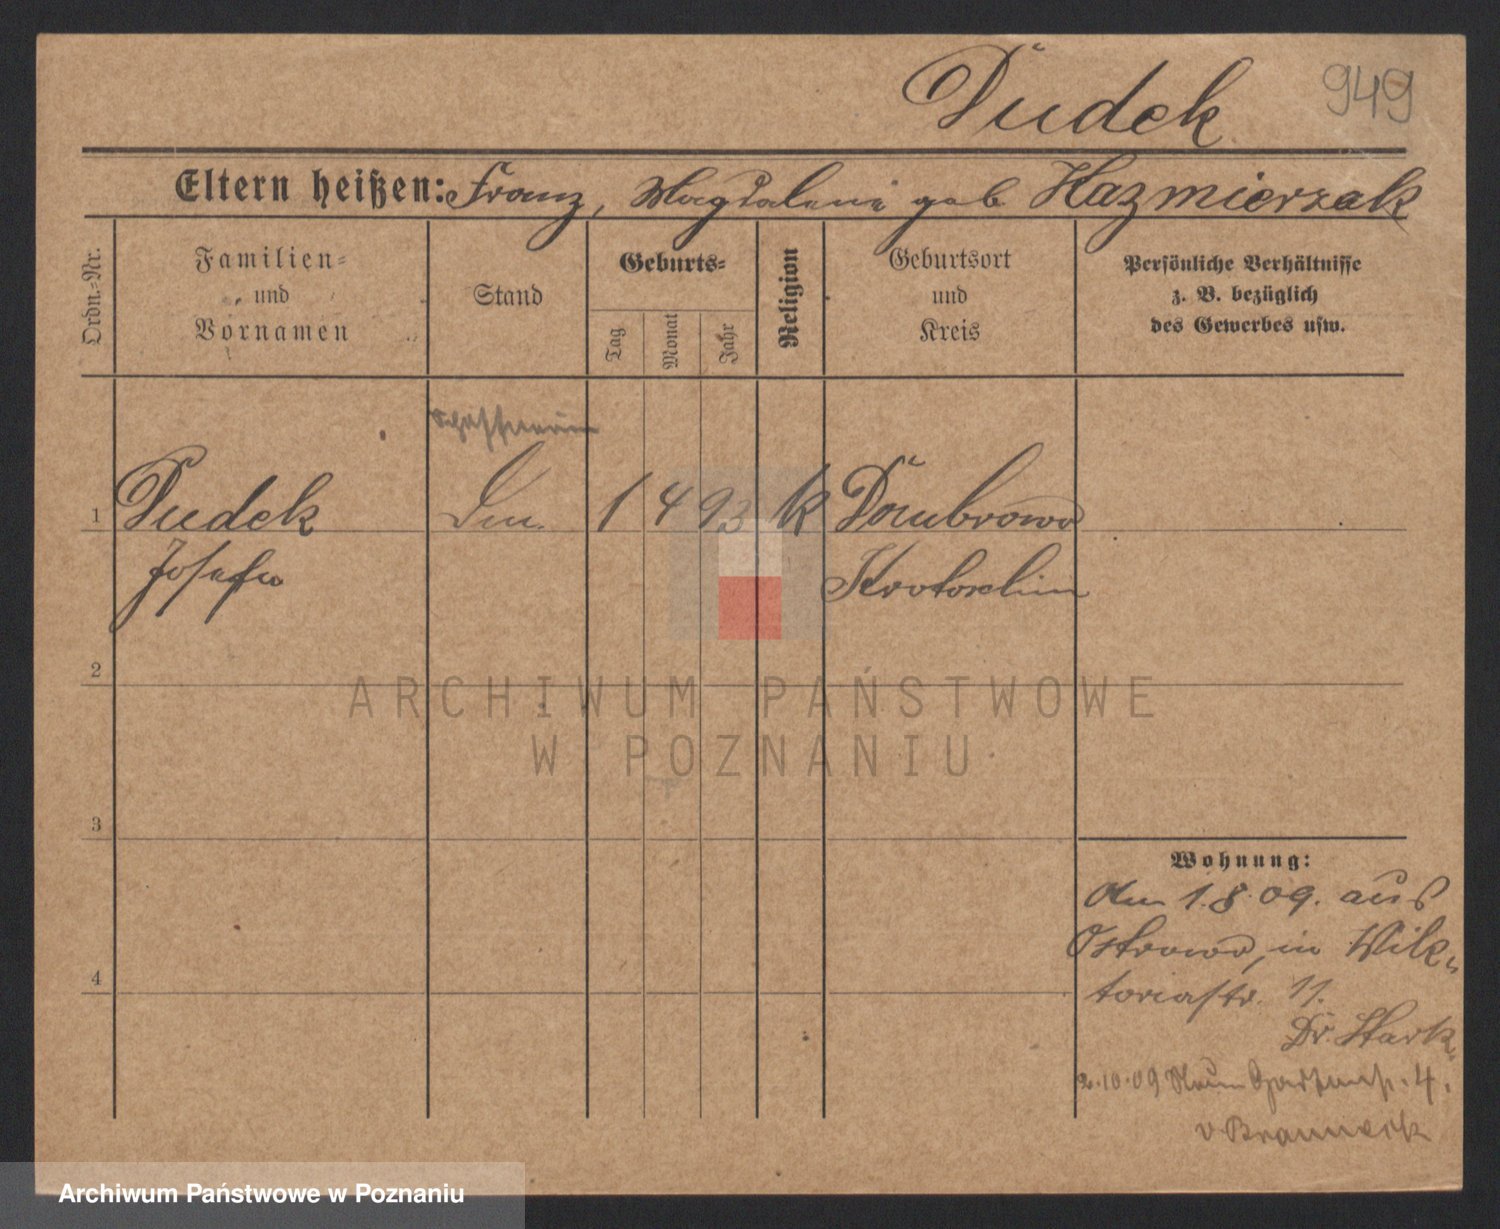 Dudek
949
Eltern heißen: Franz, Magdalena geb Kazmierzak
Ordn.-Nr.
Familien-
und
Vornamen
Stand
Geburts-
Tag
Monat
Jahr
Religion
Geburtsort
und
Kreis
Persönliche Verhältnisse
z. B. bezüglich
des Gewerbes usw.
1
Dudek
1 4 93 k
Dombrowo
Josefa
Krotoschin
2
ARCHIWUM PAŃSTWOWE
W POZNANIU
3
Wohnung:
Am 1.8.09. aus
Ostrowo, in Wik-
toriastr. 11.
Dr. Stark
4
2.10.09 Neue Gartenstr. 4.
v
Archiwum Państwowe w Poznaniu